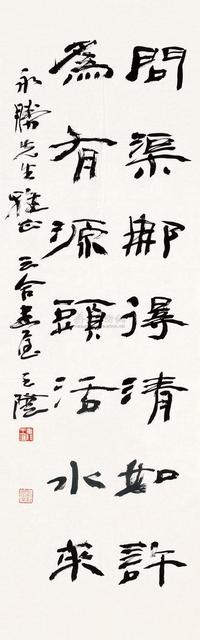 問渠那得清如許
為有源頭活水來
永勝先生雅正 三合書屋 王陞